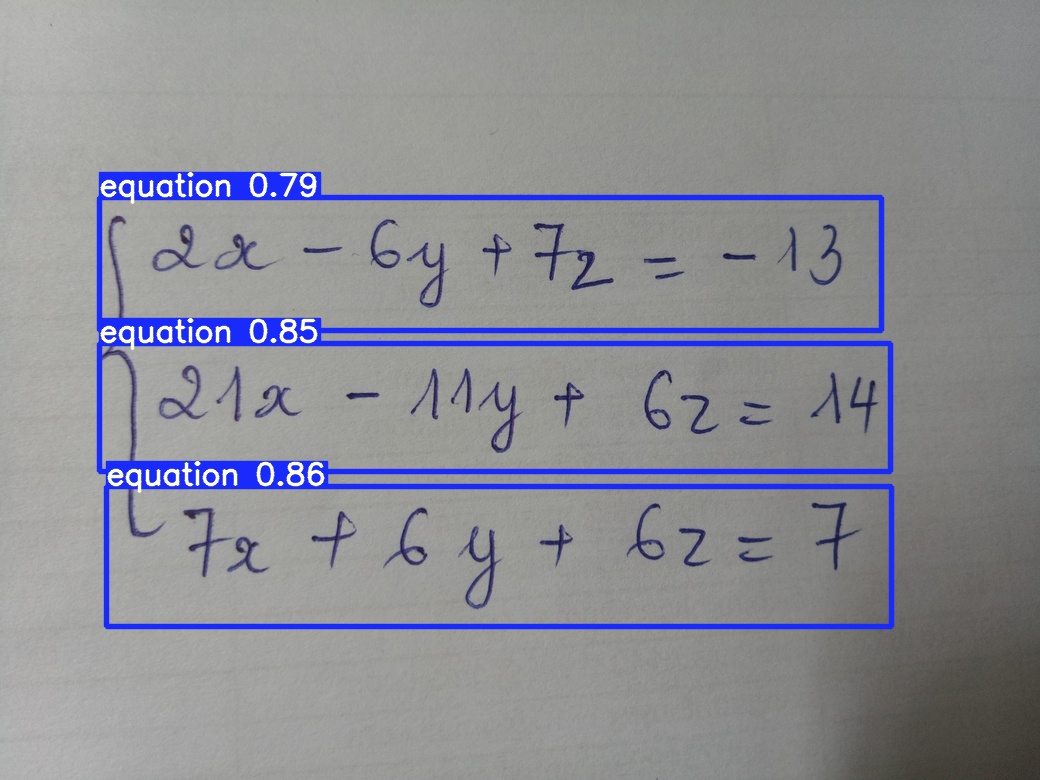 equation 0.79
2x - 6y + 7z = - 13
equation 0.85
21x - 11y + 6z = 14
equation 0.86
7x + 6y + 6z = 7